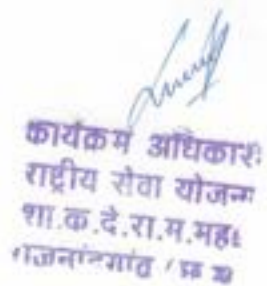 कार्यक्रम अधिकारी
राष्ट्रीय सेवा योजना
शा.क.दे.रा.म.महि
राजनांदगांव